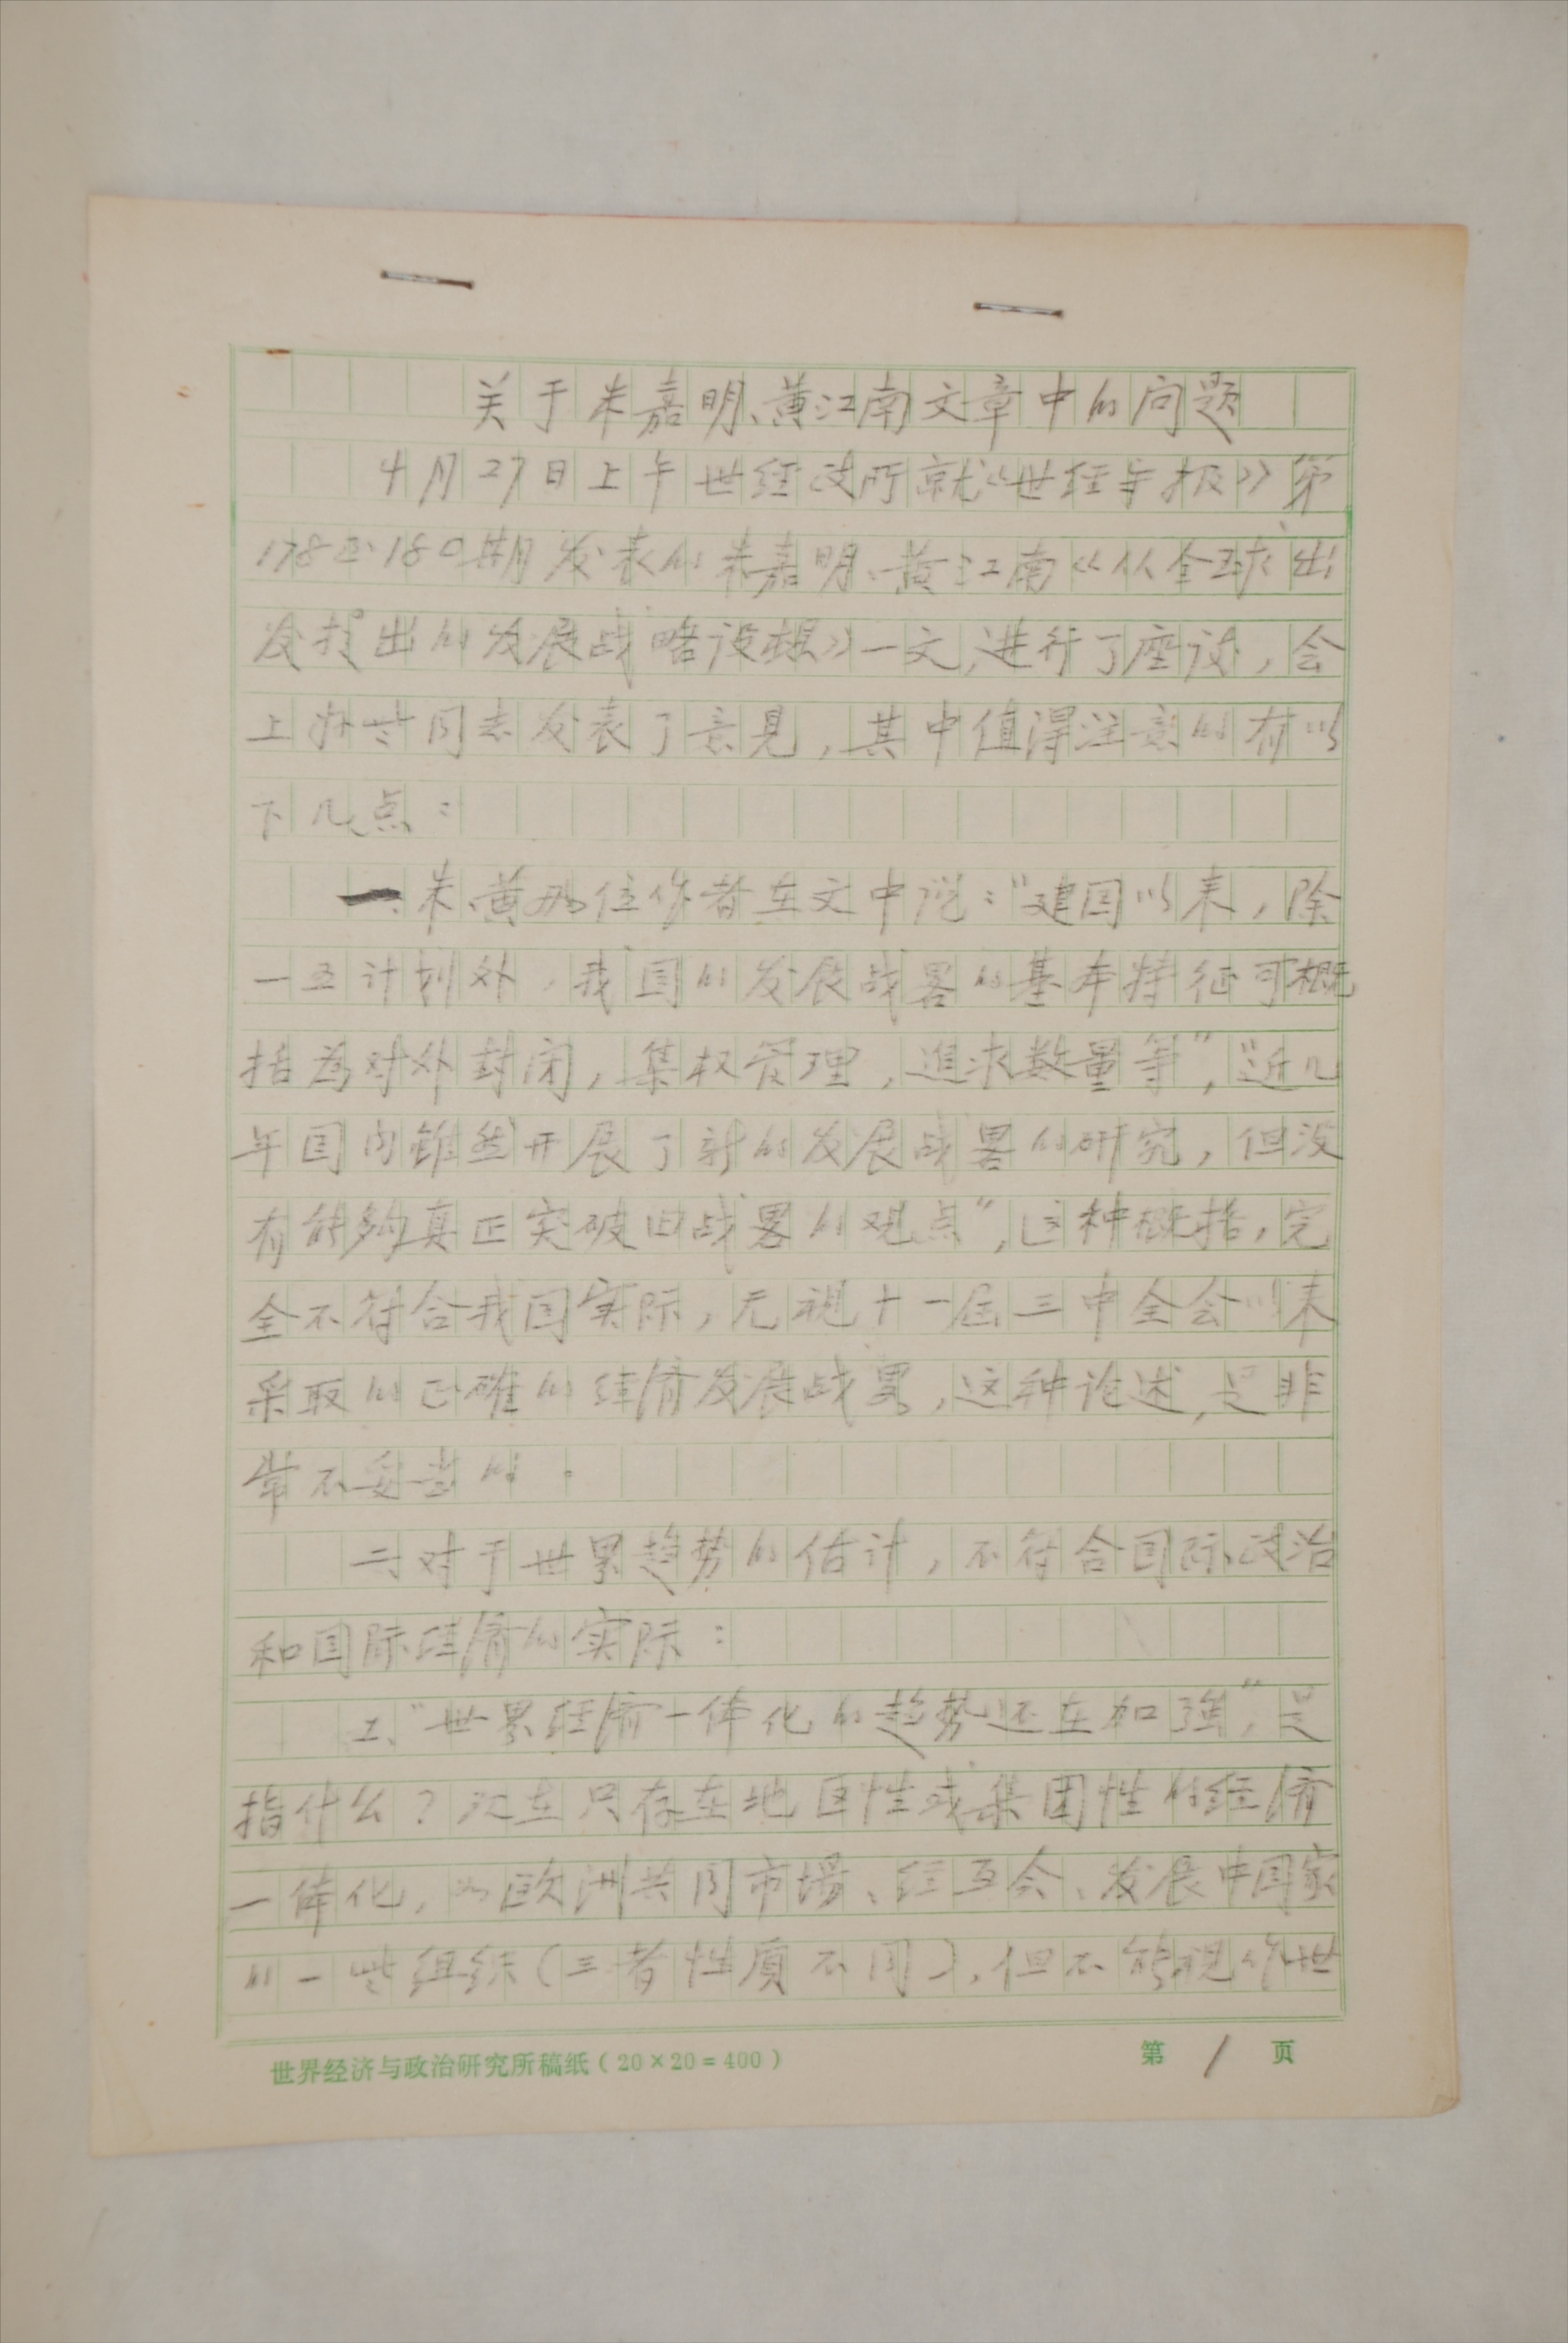 关于朱嘉明、黄江南文章中的问题
4月27日上午世经政所就《世经导报》第
178至180期发表的朱嘉明、黄江南《从全球出
发提出的发展战略设想》一文，进行了座谈，会
上好些同志发表了意见，其中值得注意的有以
下几点：
一、朱、黄两位作者在文中说：“建国以来，除
一五计划外，我国的发展战畧的基本特征可概
括为对外封闭，集权管理，追求数量等”，“近几
年国内虽然开展了新的发展战畧的研究，但没
有能够真正突破旧战畧的观点”，这种概括，完
全不符合我国实际，无视十一届三中全会以来
采取的正确的经济发展战畧，这种论述，是非
常不妥当的。
二、对于世界趋势的估计，不符合国际政治
和国际经济的实际：
1、“世界经济一体化的趋势还在加强”，是
指什么？现在只存在地区性或集团性的经济
一体化，如欧洲共同市场、经互会、发展中国家
的一些组织（三者性质不同），但不能视作世
世界经济与政治研究所稿纸（20×20=400）
第 1 页